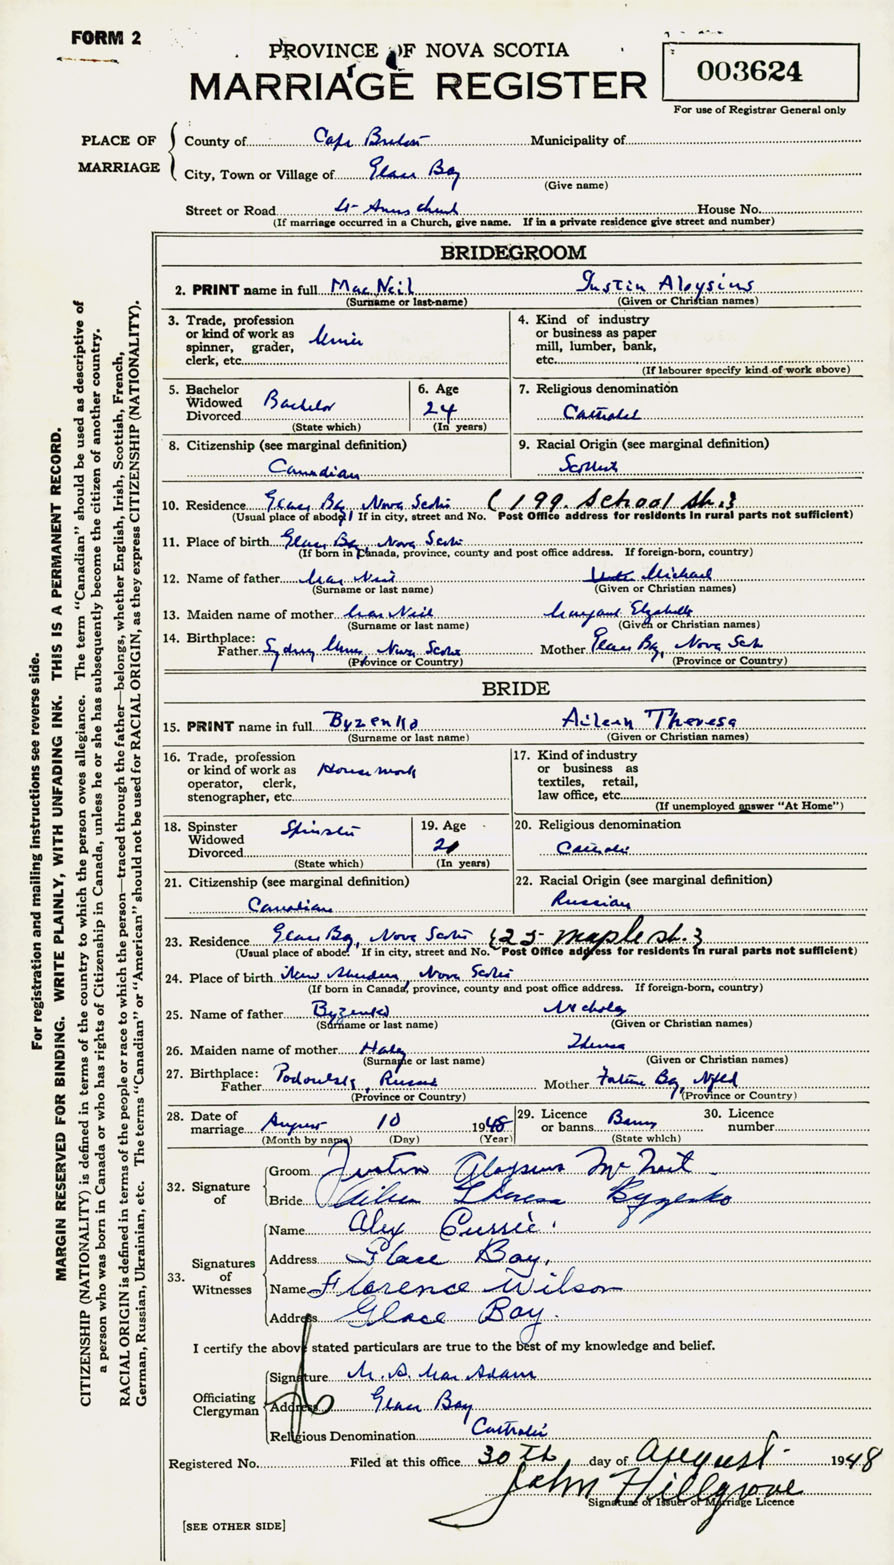 FORM 2
PROVINCE OF NOVA SCOTIA
MARRIAGE REGISTER
003624
For use of Registrar General only
PLACE OF MARRIAGE
County of Cape Breton Municipality of
City, Town or Village of Glace Bay
(Give name)
Street or Road St Anns Church House No.
(If marriage occurred in a Church, give name. If in a private residence give street and number)
BRIDEGROOM
2. PRINT name in full MacNeil Justin Aloysius
(Surname or last-name) (Given or Christian names)
3. Trade, profession or kind of work as spinner, grader, clerk, etc. Miner
4. Kind of industry or business as paper mill, lumber, bank, etc.
(If labourer specify kind of work above)
5. Bachelor Widowed Divorced Bachelor
(State which)
6. Age 24
(In years)
7. Religious denomination Catholic
8. Citizenship (see marginal definition) Canadian
9. Racial Origin (see marginal definition) Scottish
10. Residence Glace Bay Nova Scotia (199. School St.)
(Usual place of abode) If in city, street and No. Post Office address for residents in rural parts not sufficient)
11. Place of birth Glace Bay Nova Scotia
(If born in Canada, province, county and post office address. If foreign-born, country)
12. Name of father Mac Neil Michael
(Surname or last name) (Given or Christian names)
13. Maiden name of mother Mac Neil Margaret Elizabeth
(Surname or last name) (Given or Christian names)
14. Birthplace:
Father Sydney Mines, Nova Scotia Mother Glace Bay, Nova Scotia
(Province or Country) (Province or Country)
BRIDE
15. PRINT name in full Byzenko Aileen Theresa
(Surname or last name) (Given or Christian names)
16. Trade, profession or kind of work as operator, clerk, stenographer, etc. Housework
17. Kind of industry or business as textiles, retail, law office, etc.
(If unemployed answer "At Home")
18. Spinster Widowed Divorced Spinster
(State which)
19. Age
(In years)
20. Religious denomination Catholic
21. Citizenship (see marginal definition) Canadian
22. Racial Origin (see marginal definition) Russian
23. Residence Glace Bay, Nova Scotia (25 Maple St.)
(Usual place of abode. If in city, street and No. Post Office address for residents in rural parts not sufficient)
24. Place of birth New Aberdeen, Nova Scotia
(If born in Canada, province, county and post office address. If foreign-born, country)
25. Name of father Byzenko Nicholas
(Surname or last name) (Given or Christian names)
26. Maiden name of mother
(Surname or last name) (Given or Christian names)
27. Birthplace:
Father Russia Mother Fortune Bay, Nfld
(Province or Country) (Province or Country)
28. Date of marriage August 10 1948
(Month by name) (Day) (Year)
29. Licence or banns Banns
(State which)
30. Licence number
32. Signature of
Groom Justin Aloysius McNeil
Bride Aileen Theresa Byzenko
33. Signatures of Witnesses
Name Alex Currie.
Address Glace Bay.
Name Florence Wilson
Address Glace Bay.
I certify the above stated particulars are true to the best of my knowledge and belief.
Officiating Clergyman
Signature M. A. MacAdam
Address Glace Bay
Religious Denomination Catholic
Registered No. Filed at this office 30th day of August 1948
John Hillgrove
Signature of Issuer of Marriage Licence
[SEE OTHER SIDE]
For registration and mailing instructions see reverse side.
MARGIN RESERVED FOR BINDING. WRITE PLAINLY, WITH UNFADING INK. THIS IS A PERMANENT RECORD.
CITIZENSHIP (NATIONALITY) is defined in terms of the country to which the person owes allegiance. The term "Canadian" should be used as descriptive of
a person who was born in Canada or who has rights of Citizenship in Canada, unless he or she has subsequently become the citizen of another country.
RACIAL ORIGIN is defined in terms of the people or race to which the person—traced through the father—belongs, whether English, Irish, Scottish, French,
German, Russian, Ukrainian, etc. The terms "Canadian" or "American" should not be used for RACIAL ORIGIN, as they express CITIZENSHIP (NATIONALITY).